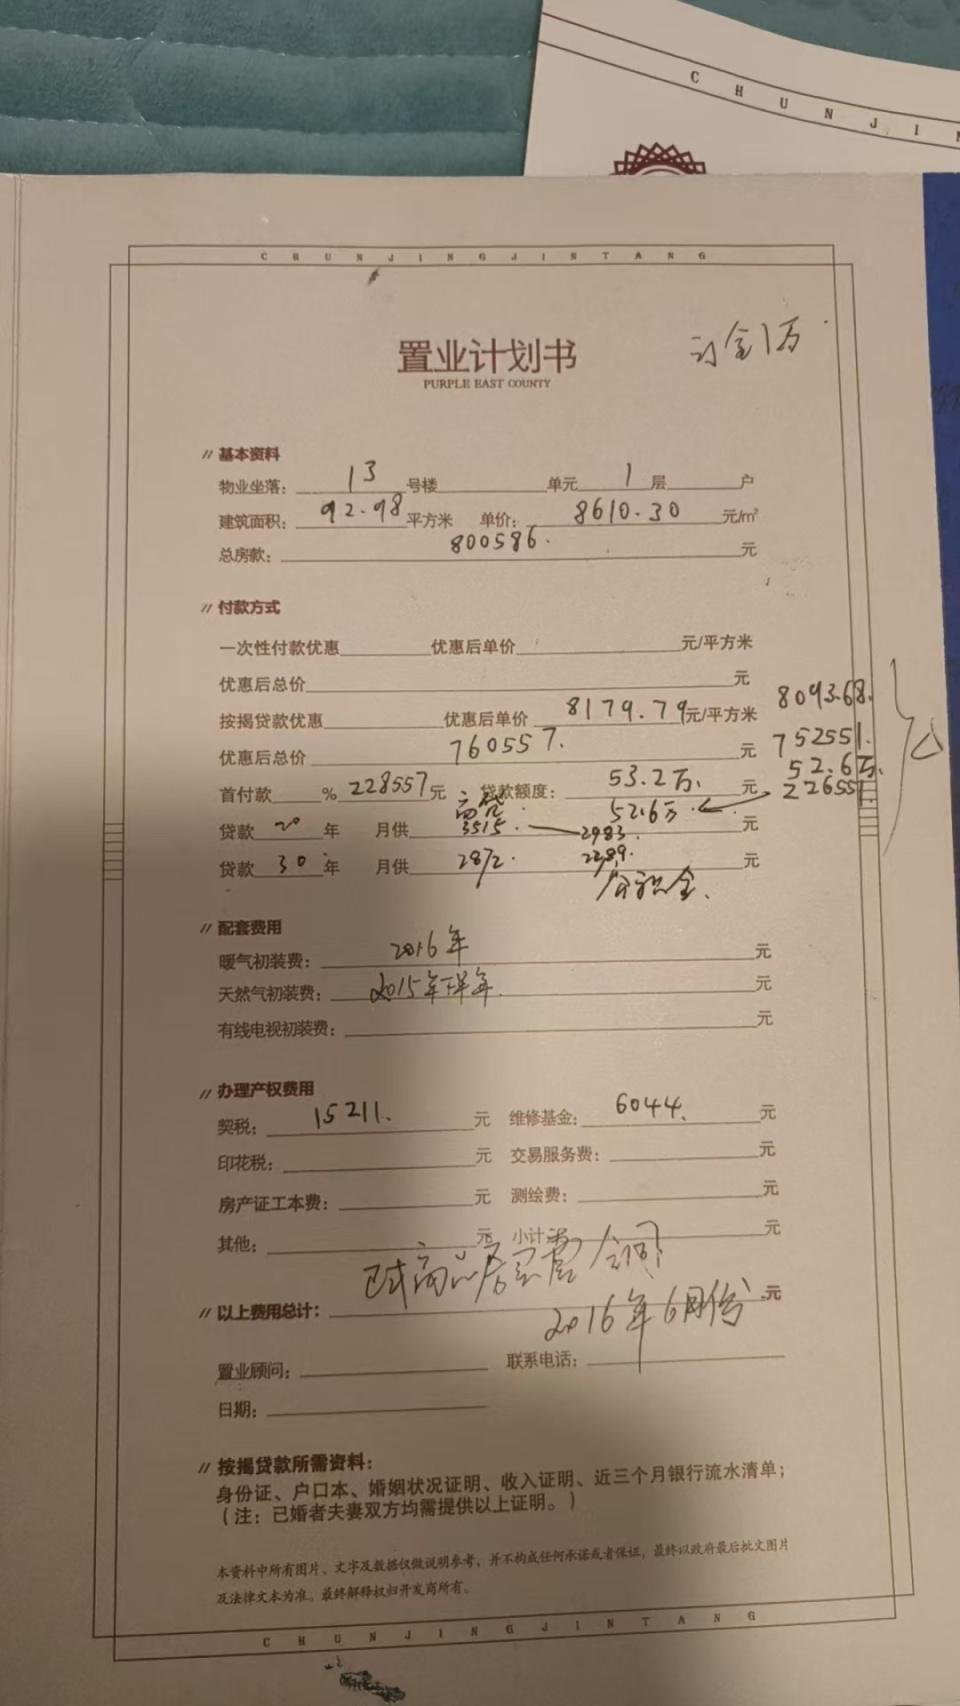 CHUNJIN
CHUNJINGJINTANG
置业计划书
PURPLE EAST COUNTY
订金1万
// 基本资料
物业坐落： 13 号楼 单元 1 层 户
建筑面积： 92.98 平方米 单价： 8610.30 元/㎡
总房款： 800586. 元
// 付款方式
一次性付款优惠 优惠后单价 元/平方米
优惠后总价 元
按揭贷款优惠 优惠后单价 8179.79 元/平方米 8093.68.
优惠后总价 760557. 元 752551.
首付款 % 228557 元 贷款额度： 53.2万. 元 52.6万.
商贷 52.6万 226551.
贷款 20 年 月供 3515. 2983. 元
贷款 30 年 月供 2872. 2289. 元
公积金.
// 配套费用
暖气初装费： 2016年 元
天然气初装费： 2015年下半年. 元
有线电视初装费： 元
// 办理产权费用
契税： 15211. 元 维修基金： 6044. 元
印花税： 元 交易服务费： 元
房产证工本费： 元 测绘费： 元
其他： 元 小计 元
商品房 合同
// 以上费用总计： 元
2016年6月份
置业顾问： 联系电话：
日期：
// 按揭贷款所需资料：
身份证、户口本、婚姻状况证明、收入证明、近三个月银行流水清单；
（注：已婚者夫妻双方均需提供以上证明。）
本资料中所有图片、文字及数据仅做说明参考，并不构成任何承诺或者保证，最终以政府最后批文图片
及法律文本为准。最终解释权归开发商所有。
CHUNJINGJINTANG